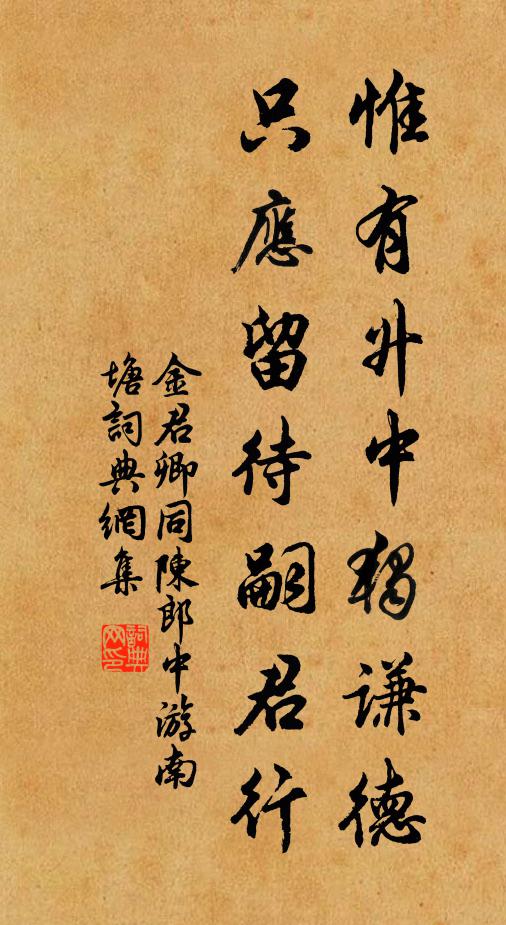 惟有升中獨謙德
只應留待嗣君行
金君卿同陳郎中游南
塘詞典網集
詞典网印